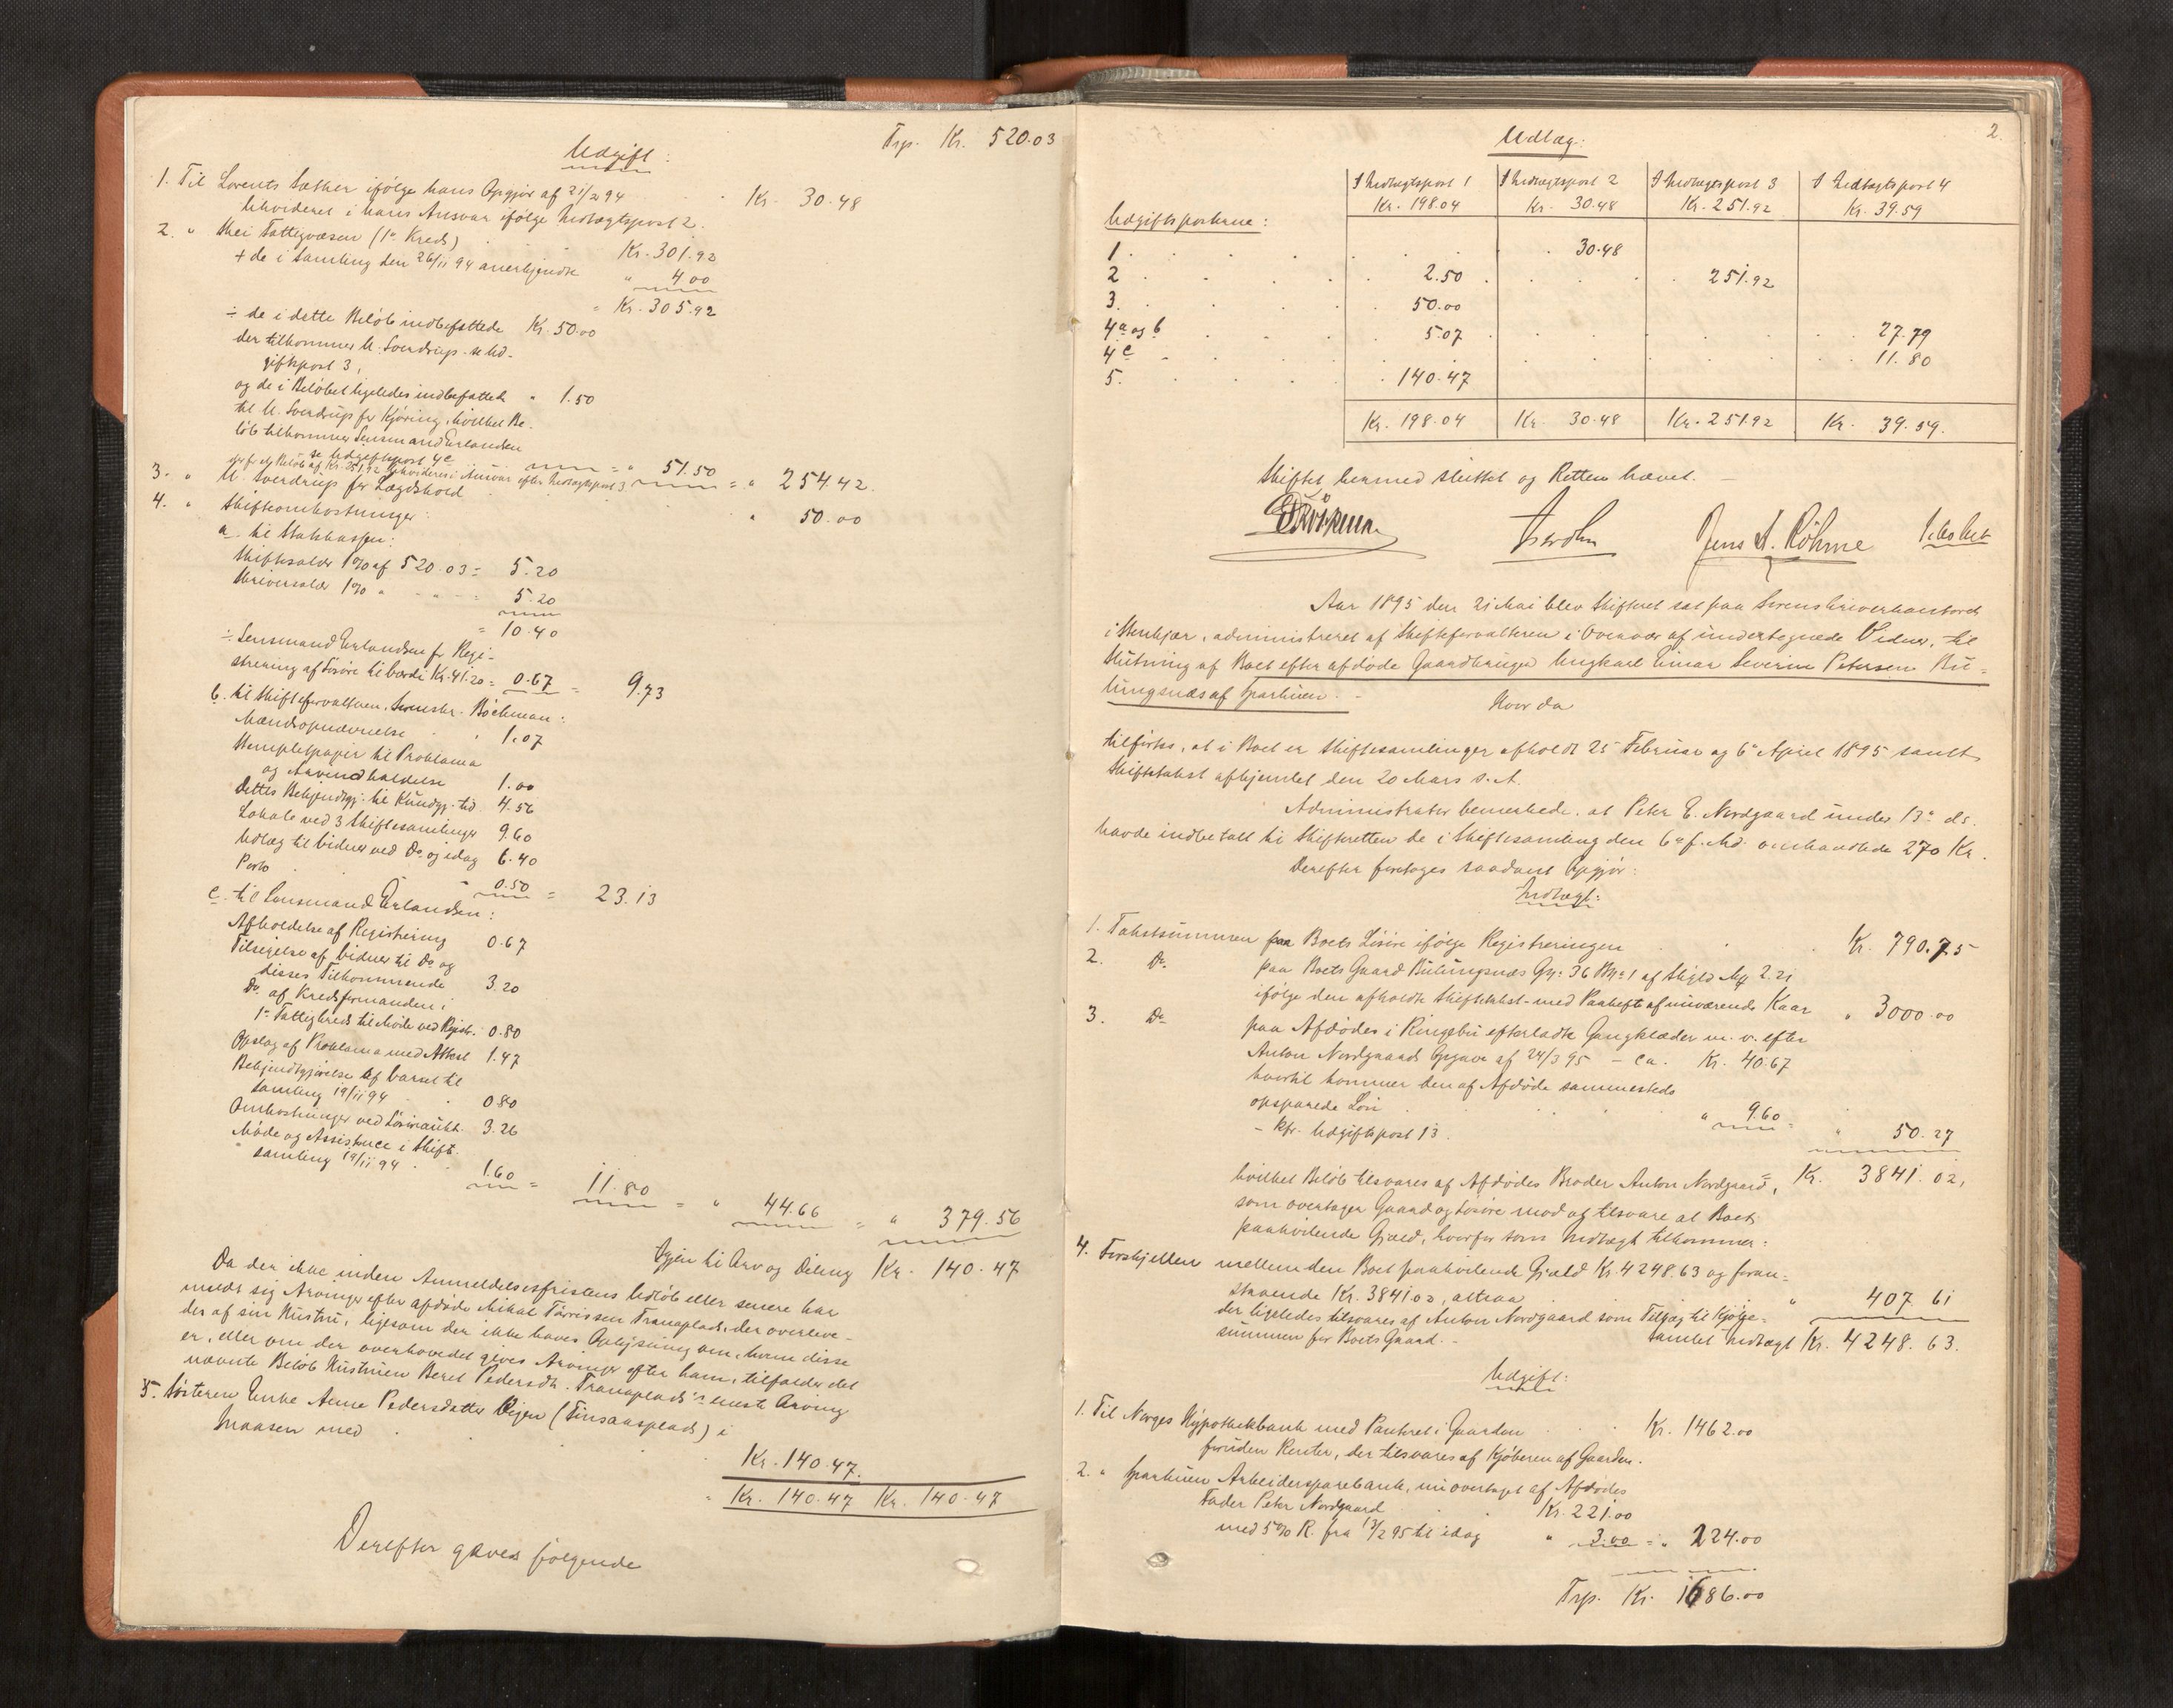 Trp. Kr. 520.03
Udgift:
1. Til Lorents Sæther ifølge hans Opgjør af 21/2 94 Kr. 30.48
likvideret i hans Ansvar ifølge Indtægtspost 2.
2. " Fattigvæsen (1e Kreds) Kr. 301.92
+ de i Samling den 26/11 94 anerkjendte " 4.00
= Kr. 305.92
÷ de i dette Beløb indbefattede Kr. 50.00
der tilkommer U. Sverdrup - se Ud-
giftspost 3,
og de i Beløbet ligeledes indbefattede " 1.50
til U. Sverdrup for Kjøring, hvilket Be-
løb tilkommer Lensmand Erlandsen
se Udgiftspost 4c = " 51.50 = " 254.42.
hvoraf et Beløb af Kr. 251.92 likvideres i Ansvar efter Indtægtspost 3
3. " U. Sverdrup for Lægdshold " 50.00
4. " Skifteomkostninger:
a. til Statskassen:
Skiftesalær 1% af 520.03 = 5.20
Skriversalær 1% " - " - = 5.20
= 10.40
÷ Lensmand Erlandsen for Regi-
strering af Løsøre til Værdi Kr. 41.20 = 0.67 = 9.73
b. til Skifteforvalteren, Sorenskr. Böckman:
Mændsopnævnelse " 1.07
Stempletpapir til Proklama
og Arveindkaldelse 1.00
Dettes Bekjendtgj. til Kundgj. tid. 4.56
Lokale ved 3 Skiftesamlinger 9.60
Udlæg til Vidner ved Do og idag 6.40
Porto 0.50 = 23.13
c. til Lensmand Erlandsen:
Afholdelse af Registrering 0.67
Tilsigelse af Vidner til Do og
disses Tilkommende 3.20
Do af Kredsformanden i
1e Fattigkreds til Møde ved Regist. 0.80
Opslag af Proklama med Attest 1.47
Bekjendtgjørelse af Varsel til
Samling 19/11 94 0.80
Omkostninger ved Løsøreaukt. 3.26
Møde og Assistance i Skift.
samling 19/11 94 1.60 = 11.80 = " 44.66 = " 379.56
Igjen til Arv og Deling Kr. 140.47
Da der ikke inden Anmeldelsesfristens Udløb eller senere har
meldt sig Arvinger efter afdøde Mikal Tørrissen Tranaplads, der overleve-
des af sin Hustru, ligesom der ikke haves Oplysning om, hvem disse
er, eller om der overhovedet gives Arvinger efter ham, tilfalder det
nævnte Beløb Hustruen Beret Pedersdtr. Tranaplads's eneste Arving
5. Søsteren Enke Anne Pedersdatter Vigen (Finsaasplads) i
Snaasen med Kr. 140.47.
Kr. 140.47 Kr. 140.47
Derefter gaves følgende
2.
Udlæg:
I Indtægtspost 1 I Indtægtspost 2 I Indtægtspost 3 I Indtægtspost 4
Kr. 198.04 Kr. 30.48 Kr. 251.92 Kr. 39.59
Udgiftsposterne:
1. 30.48
2. 2.50 251.92
3. 50.00
4a og b 5.07 27.79
4c 11.80
5. 140.47
Kr. 198.04 Kr. 30.48 Kr. 251.92 Kr. 39.59.
Skiftet hermed sluttet og Retten hævet.
Jens A. Röhme
Aar 1895 den 21 Mai blev Skifteret sat paa Sorenskriverkontoret
i Stenkjær, administreret af Skifteforvalteren i Overvær af undertegnede Vidner, til
Slutning af Boet efter afdøde Gaardbruger Ungkarl Einar Severin Petersen Bu-
lungsnæs af Sparbuen.
Hvor da
tilførtes, at i Boet er Skiftesamlinger afholdt 25 Februar og 6e April 1895 samt
Skiftetakst afhjemlet den 20 Mars s. A.
Administrator bemerkede, at Peter E. Nordgaard under 13e ds.
havde indbetalt til Skifteretten de i Skiftesamling den 6e f. Md. omhandlede 270 Kr.
Derefter foretoges saadant Opgjør:
Indtægt:
1. Takstsummen paa Boets Løsøre ifølge Registreringen Kr. 790.75
2. Do paa Boets Gaard Bulungsnæs Gn. 36 Bn. 1 af Skyld Mk 2.21
ifølge den afholdte Skiftetakst - med Paaheft af nuværende Kaar " 3000.00
3. Do paa Afdødes i Ringebu efterladte Gangklæder m. v. efter
Anton Nordgaards Opgave af 24/3 95 - ca. Kr. 40.67
hvortil kommer den af Afdøde sammesteds
opsparede Løn " 9.60 = " 50.27
- kfr. Udgiftspost 13.
hvilket Beløb tilsvares af Afdødes Broder Anton Nordgaard, Kr. 3841.02,
som overtager Gaard og Løsøre mod at tilsvare al Boets
paahvilende Gjæld, hvorfor som Indtægt tilkommer:
4. Forskjellen mellem den Boet paahvilende Gjæld Kr. 4248.63 og foran-
staaende Kr. 3841.02, altsaa " 407.61
der ligeledes tilsvares af Anton Nordgaard som Tillæg til Kjøbe-
summen for Boets Gaard. - Samlet Indtægt Kr. 4248.63.
Udgift:
1. Til Norges Hypothekbank med Panteret i Gaarden Kr. 1462.00
foruden Renter, der tilsvares af Kjøberen af Gaarden.
2. " Sparbuen Arbeidersparebank, nu overtaget af Afdødes
Fader Peter Nordgaard Kr. 221.00
med 5% R. fra 13/2 95 til idag " 3.00 = " 224.00
Trp. Kr. 1686.00